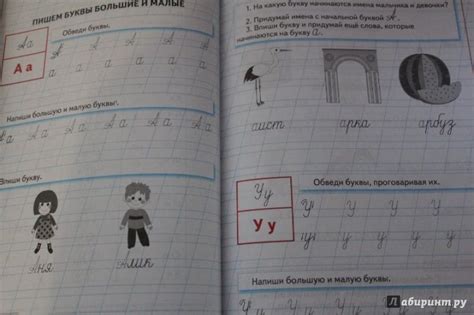 ПИШЕМ БУКВЫ БОЛЬШИЕ И МАЛЫЕ
Аа
А а
Обведи буквы.
А а А а А а А а А а А а
Напиши большую и малую буквы.
А а А а А а А а А а А а
Впиши букву.
Аня
Алик
1. На какую букву начинаются имена мальчика и девочки?
2. Придумай имена с начальной буквой А.
3. Впиши букву и придумай ещё слова, которые
начинаются на букву а.
аист
арка
арбуз
Уу
У у
Обведи буквы, проговаривая их.
У У У У У
у у у у у у
Напиши большую и малую буквы.
Лабиринт.ру